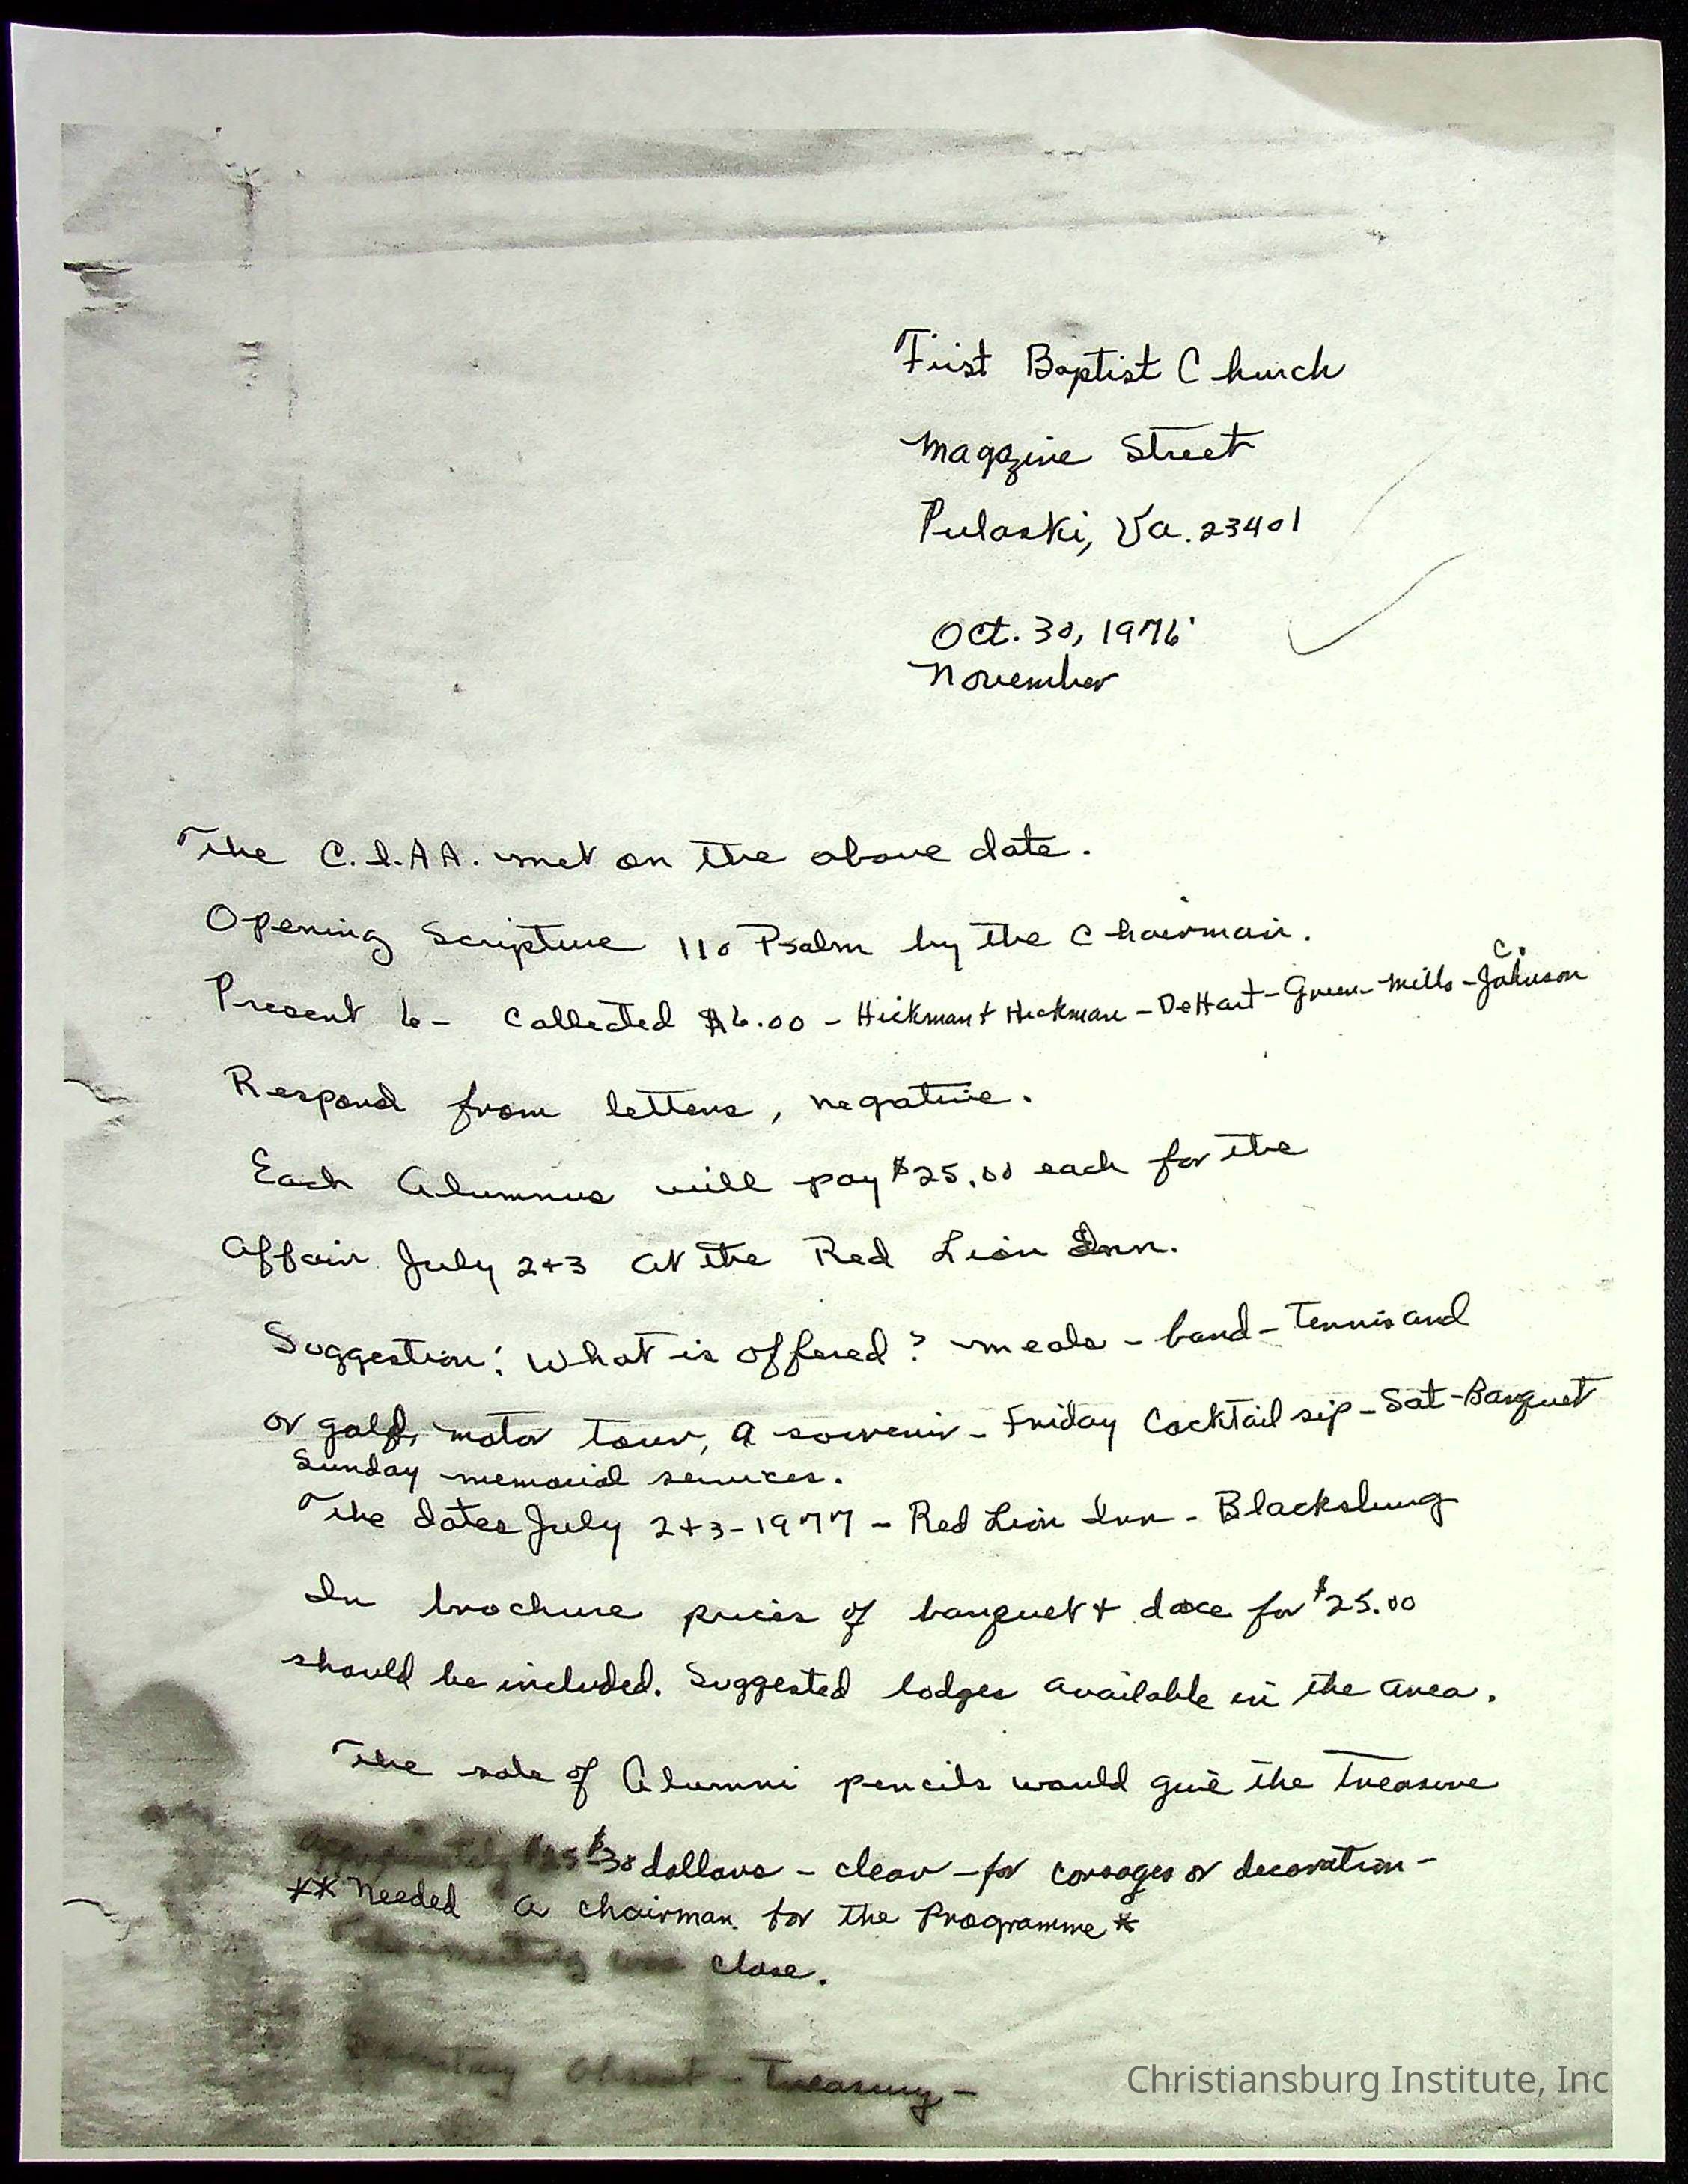 First Baptist Church
Magazine Street
Pulaski, Va. 23401
Oct. 30, 1976
November
The C.I.A.A. met on the above date.
Opening Scripture 110 Psalm by the Chairman.
C.
Present 6 - Collected $6.00 - Hickman + Hickman - DeHart - Green - Mills - Johnson
Respond from letters, negative.
Each Alumnus will pay $25.00 each for the
affair July 2+3 at the Red Lion Inn.
Suggestion: What is offered? meals - band - Tennis and
or golf, motor tour, a souvenir - Friday Cocktail sip - Sat - Banquet
Sunday memorial services.
The dates July 2+3 - 1977 - Red Lion Inn - Blacksburg
In brochure prices of banquet + dance for $25.00
should be included. Suggested lodges available in the area.
The sale of Alumni pencils would give the treasure
approximately $25 $30 dollars - clear - for corsages or decoration -
** Needed a chairman for the Programme *
meeting was close.
Secretary Absent - Treasury -
Christiansburg Institute, Inc